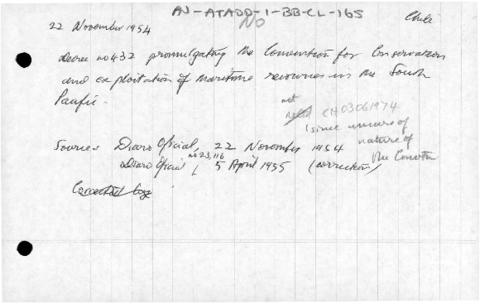 AJ-ATADD-1-BB-CL-165
NO
Chile
22 November 1954
Decree no 432 promulgating the Convention for Conservation
and exploitation of maritime resources in the South
Pacific.
not
CH03061974
(since unsure of
nature of
the Convtn
Sources Diaro Oficial, 22 November 1954
Diaro Oficial, no 23,116 5 April 1955 (correction)